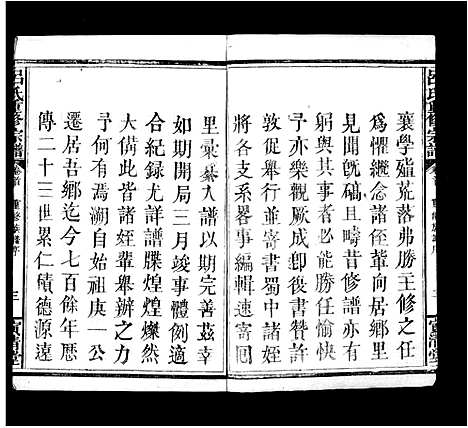 呂氏重修宗譜
襄學殖荒落弗勝主修之任
為懼繼念諸侄革向居鄉里
見聞旣碻且疇昔修衆廳予
躬與其事者必能勝任愉快
予亦樂觀厥成郵書贊許並
敦促舉行並寄書國內外
將各支系畧事編輯速寄回
里彙綦入譜以期完善茲幸
如期開局三月竣事體例適
合紀録尤詳譜牒煌煌燦然
大備此皆諸姪輩舉辦之功
予何有焉溯自始祖庚一公
遷居吾鄉迄今七百餘年歷
傳二十三世累仁積德源遠
呂氏重修宗譜
卷首
重修族譜序
三